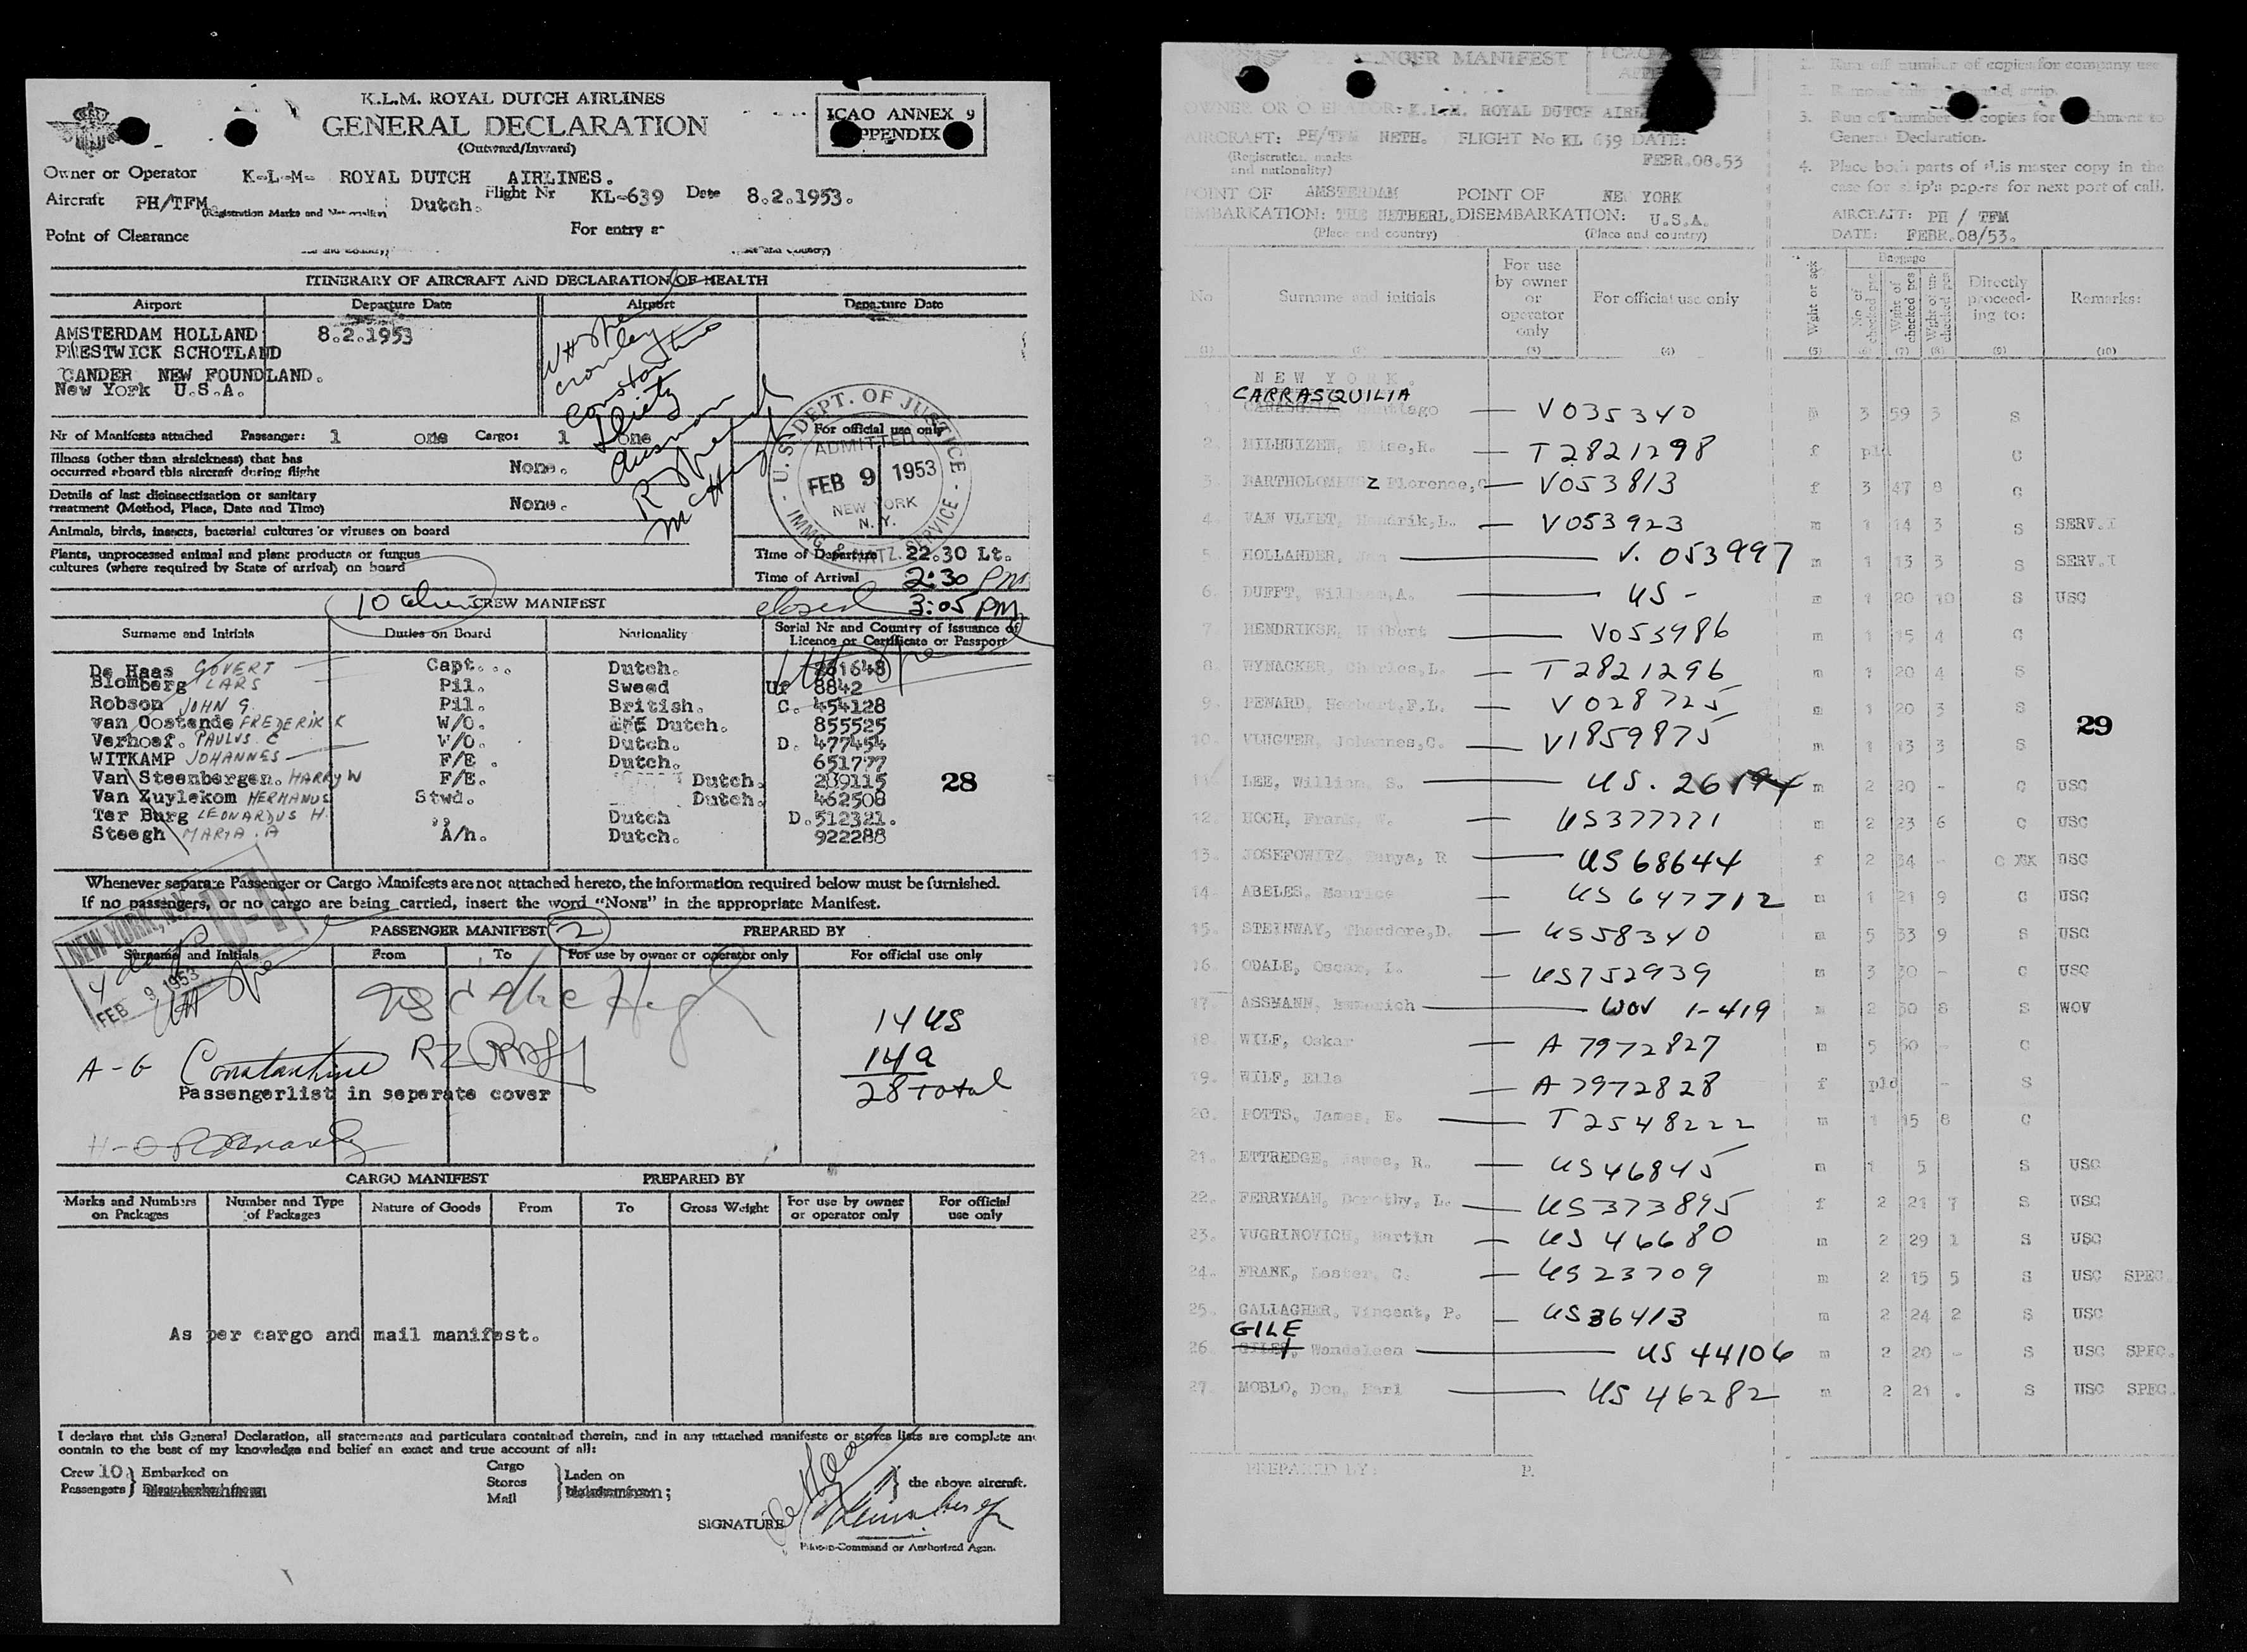 K.L.M. ROYAL DUTCH AIRLINES
GENERAL DECLARATION
(Outward/Inward)
ICAO ANNEX 9
APPENDIX
Owner or Operator K-L-M- ROYAL DUTCH AIRLINES.
Aircraft PH/TFM (Registration Marks and Nationality) Dutch. Flight Nr KL-639 Date 8.2.1953.
Point of Clearance For entry at
ITINERARY OF AIRCRAFT AND DECLARATION OF HEALTH
Airport Departure Date Airport Departure Date
AMSTERDAM HOLLAND 8.2.1953
PRESTWICK SCHOTLAND
GANDER NEW FOUNDLAND.
New York U.S.A.
Crowley
Constantino
Dietz
Ausmann
McHugh
Nr of Manifests attached Passenger: 1 one Cargo: 1 one
For official use only
Illness (other than airsickness) that has
occurred aboard this aircraft during flight None.
Details of last disinsectisation or sanitary
treatment (Method, Place, Date and Time) None.
Animals, birds, insects, bacterial cultures or viruses on board
Plants, unprocessed animal and plant products or fungus
cultures (where required by State of arrival) on board
U.S. DEPT. OF JUSTICE
ADMITTED
FEB 9 1953
NEW YORK
N.Y.
IMMG. & NATZ. SERVICE
Time of Departure 22.30 Lt.
Time of Arrival 2:30 PM
closed 3:05 PM
10 CREW MANIFEST
Surname and Initials Duties on Board Nationality Serial Nr and Country of Issuance of
Licence or Certificate or Passport
De Haas GOVERT Capt... Dutch. 261648
Blomberg LARS Pil. Sweed Uf 8842
Robson JOHN G. Pil. British. C. 454128
van Oostende FREDERIK K W/O. Dutch. 855525
Verhoef. PAULUS C W/O. Dutch. D. 477454
WITKAMP JOHANNES F/E . Dutch. 651777
Van Steenbergen. HARRY W F/E. Dutch. 289115
28
Van Zuylekom HERMANUS Stwd. Dutch. 462508
Ter Burg LEONARDUS H. ,, Dutch D.512321.
Steegh MARIA.A A/h. Dutch. 922288
Whenever separate Passenger or Cargo Manifests are not attached hereto, the information required below must be furnished.
If no passengers, or no cargo are being carried, insert the word "NONE" in the appropriate Manifest.
NEW YORK, N.Y.
FEB 9 1953
PASSENGER MANIFEST 2 PREPARED BY
Surname and Initials From To For use by owner or operator only For official use only
14 US
14 a
28 Total
A-G Constantino
Passengerlist in separate cover
H-O
CARGO MANIFEST PREPARED BY
Marks and Numbers on Packages Number and Type of Packages Nature of Goods From To Gross Weight For use by owner or operator only For official use only
As per cargo and mail manifest.
I declare that this General Declaration, all statements and particulars contained therein, and in any attached manifests or stores lists are complete and
contain to the best of my knowledge and belief an exact and true account of all:
Crew 10 Embarked on Cargo Laden on
Passengers Stores Mail the above aircraft.
SIGNATURE
Pilot-in-Command or Authorized Agent.
PASSENGER MANIFEST
OWNER OR OPERATOR: K.L.M. ROYAL DUTCH AIRL
AIRCRAFT: PH/TFM NETH. FLIGHT No KL 639 DATE:
(Registration marks and nationality) FEBR.08.53
POINT OF EMBARKATION: AMSTERDAM THE NETHERL. POINT OF DISEMBARKATION: NEW YORK U.S.A.
(Place and country) (Place and country)
1. Run off number of copies for company use
3. Run off number of copies for attachment to
General Declaration.
4. Place both parts of this master copy in the
case for ship's papers for next port of call.
AIRCRAFT: PH / TFM
DATE: FEBR.08/53.
No Surname and initials For use by owner or operator only For official use only Wght or sex Baggage No of checked pcs Wght of checked pcs Directly proceeding to: Remarks:
(1) (2) (3) (4) (5) (6) (7) (8) (9) (10)
NEW YORK.
CARRASQUILIA
1. Santiago — V035340 m 3 59 3 S
2. MILHUIZEN, Elise,R. — T2821298 f pld C
3. BARTHOLOMEUSZ Florence, — V053813 f 3 47 8 C
4. VAN VLIET, Hendrik,L. — V053923 m 1 14 3 S SERV.
5. HOLLANDER, — V.053997 m 1 13 3 S SERV.
6. DUFFT, William,A. — US- m 1 20 10 S USC
7. HENDRIKSE, — V053986 m 1 15 4 C
8. WYNACKER, Charles,L. — T2821296 m 1 20 4 S
9. PENARD, Herbert,F.L. — V028725 m 1 20 3 S
29
10. VLUGTER, Johannes,C. — V1859875 m 1 13 3 S
11. LEE, William S. — US. 26194 m 2 20 - C USC
12. HOCH, Frank, W. — US377771 m 2 23 6 C USC
13. JOSEFOWITZ, Tanya, R — US68644 f 2 34 - C USC
14. ABELES, Maurice — US647712 m 1 21 9 C USC
15. STEINWAY, Theodore,D. — US58340 m 5 33 9 S USC
16. ODALE, Oscar, I. — US752939 m 3 30 - C USC
17. ASSMANN, Emmerich — WOV 1-419 m 2 30 8 S WOV
18. WILF, Oskar — A7972827 m 5 60 - C
19. WILF, Ella — A7972828 f pld - S
20. POTTS, James, E. — T2548222 m 1 15 8 C
21. ETTREDGE, James, R. — US46845 m 1 5 S USC
22. FERRYMAN, Dorothy, L. — US373895 f 2 21 7 S USC
23. VUGRINOVICH, Martin — US46680 m 2 29 1 S USC
24. FRANK, Lester, C. — US23709 m 2 15 5 S USC SPEC.
25. GALLAGHER, Vincent, P. — US36413 m 2 24 2 S USC
GILE
26. GILES, Wendeleen — US44106 m 2 20 - S USC SPEC.
27. MOBLO, Don, Earl — US46282 m 2 21 . S USC SPEC.
PREPARED BY: P.